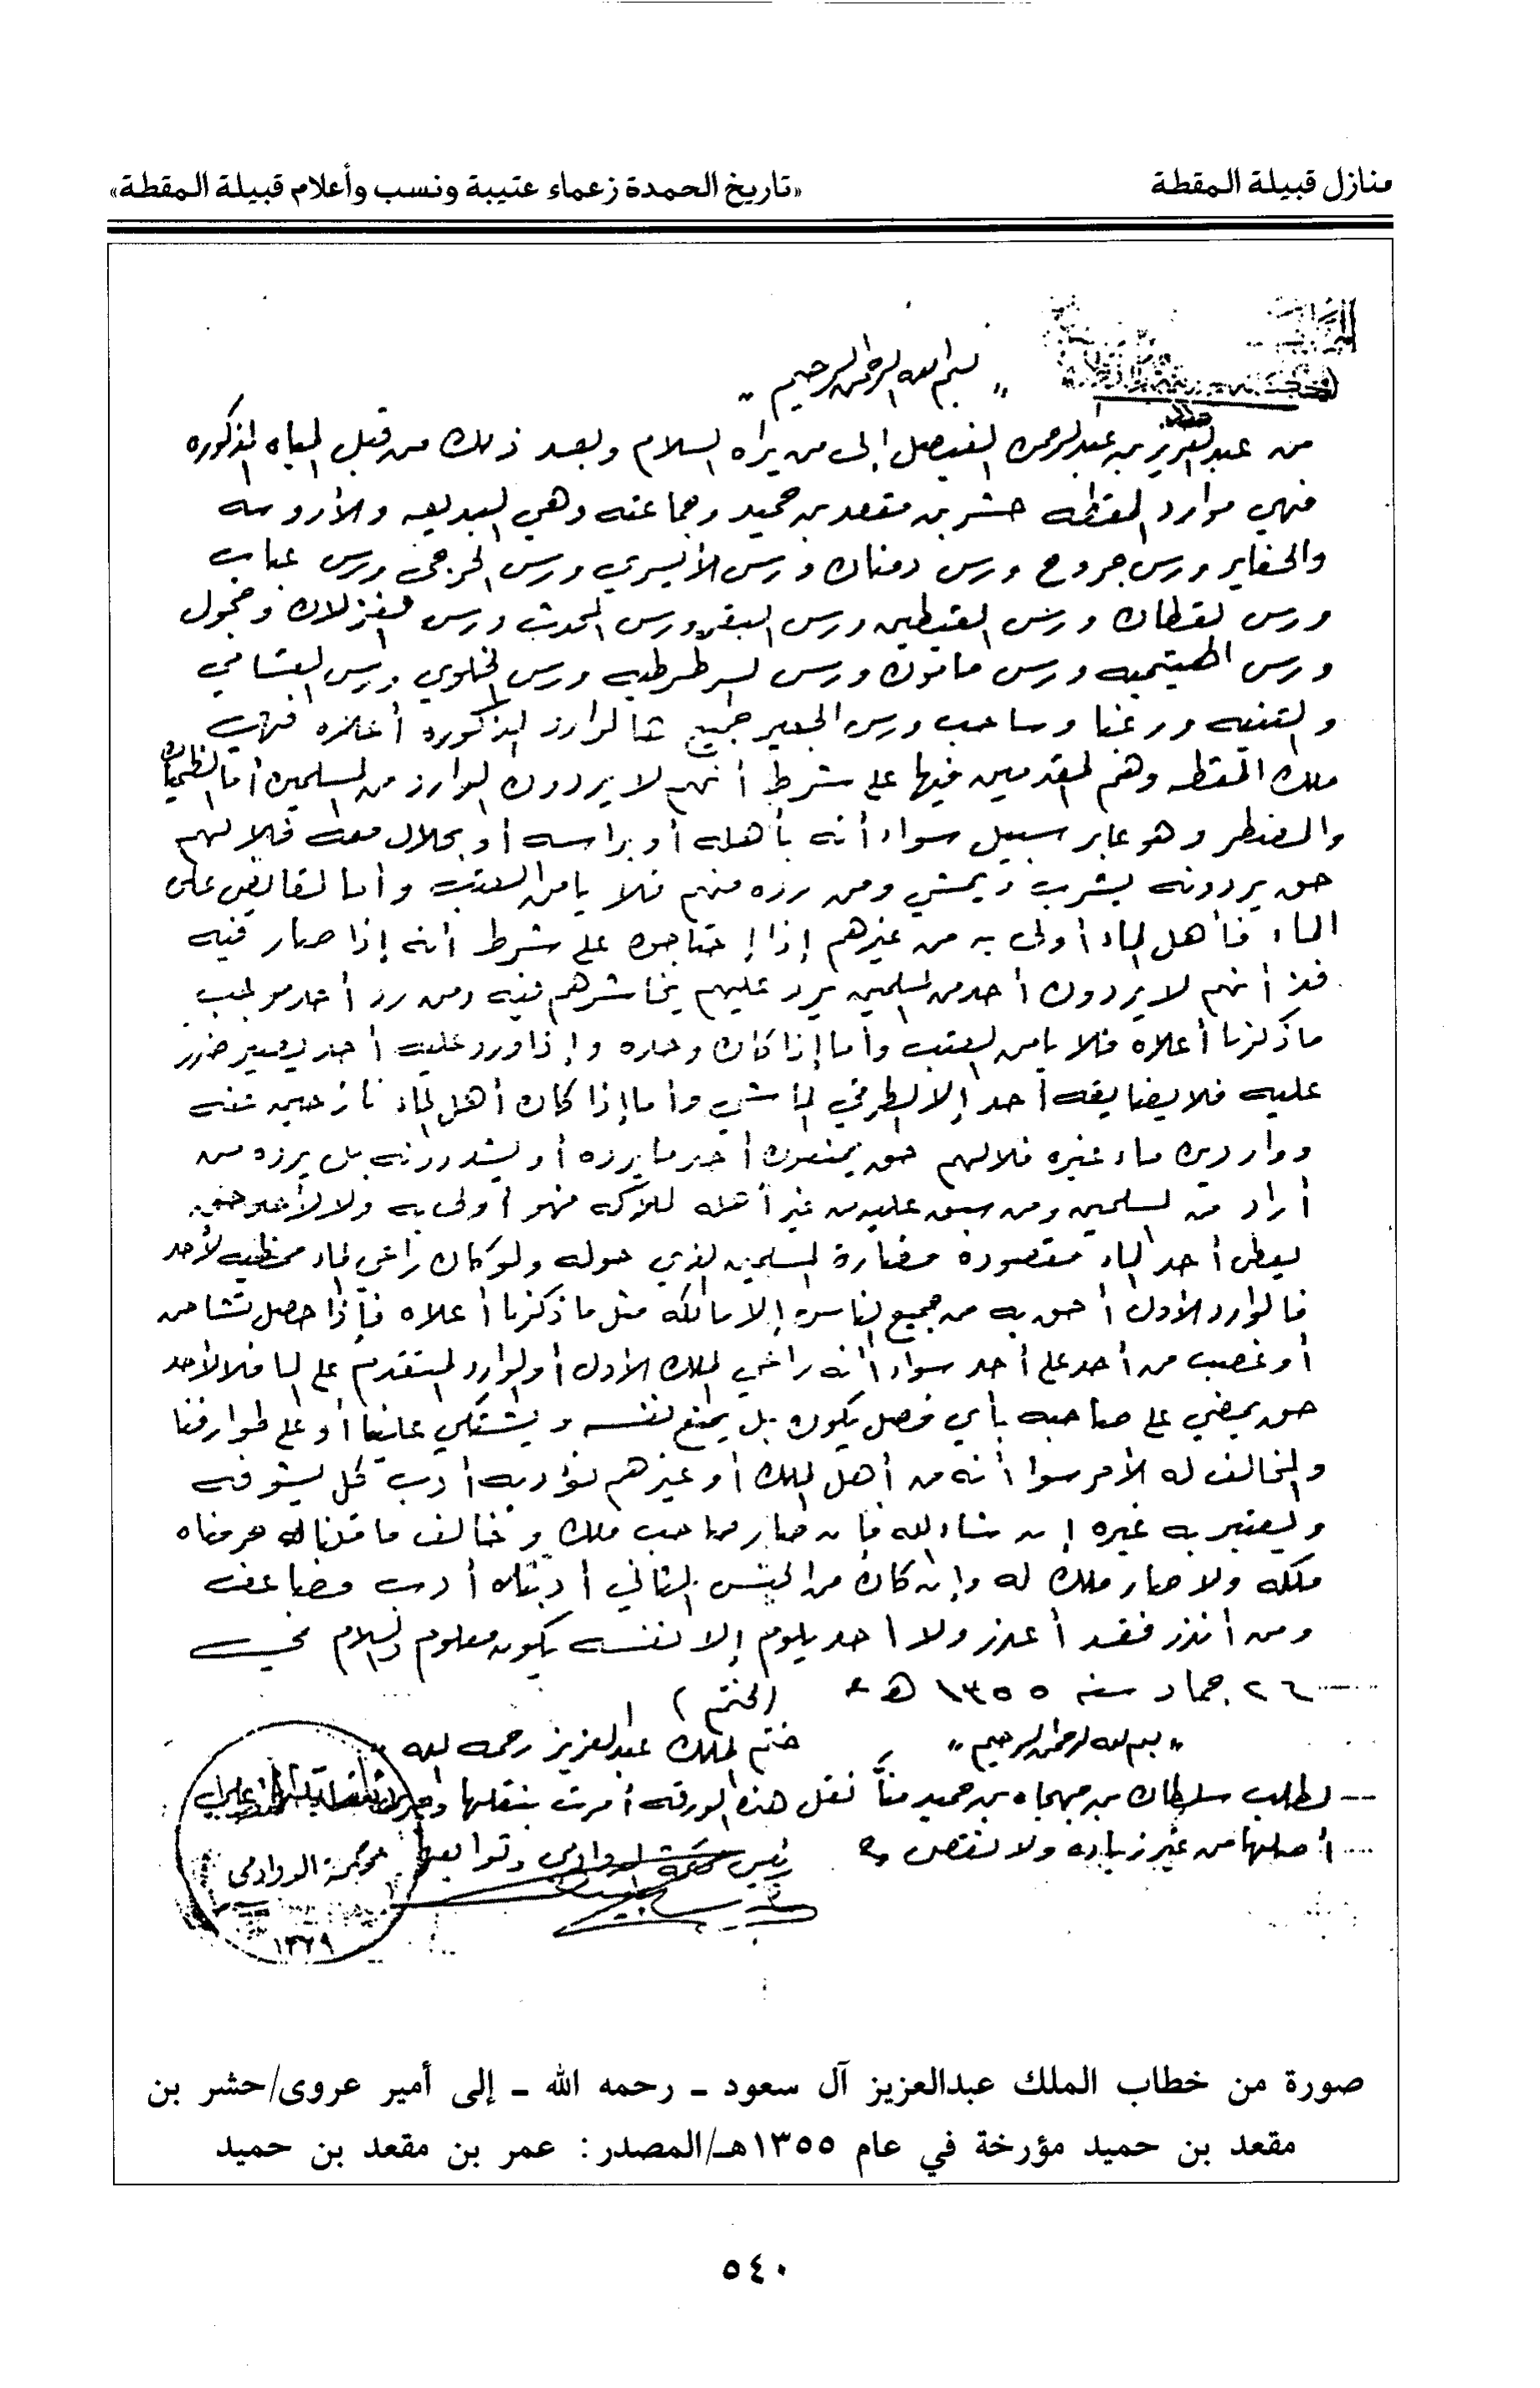 منازل قبيلة المقطة
«تاريخ الحمدة زعماء عتيبة ونسب وأعلام قبيلة المقطة»
" بسم الله الرحمن الرحيم "
من عبدالعزيز بن عبدالرحمن الفيصل إلى من يراه السلام وبعد ذلك من قبل المياه المذكوره
فهي موارد المقطه حشر بن مقعد بن حميد وجماعته وهي البديعه والأروسه
والحفاير ورس جروح ورس دمنان ورس الأيسري ورس الخرجي ورس عباب
ورس لقطان ورس القنيطين ورس البقر ورس المحدث ورس الغزلان وضجول
ورس الهيتميه ورس ماتون ورس الطرطيه ورس الخلوي ورس البشامي
والقنيه ورغنا وساحب ورس الجعير جميع الموارد المذكوره أعلاه فهي
ملك المقطه وهم المقدمين فيها على شرط أنهم لا يردون الوارد من المسلمين أما الظميان
والمضطر وهو عابر سبيل سواء أنه بأهله أو براسه أو بحلال معه فلا لهم
حق يردونه يشرب ويمشي ومن رده منهم فلا يامن العتب وأما القايض على
الماء فأهل الماء أولى به من غيرهم إذا إحتاجوه على شرط أنه إذا صار فيه
فذ أنهم لا يردون أحد من المسلمين يرد عليهم يخاشرهم فيه ومن رد أحد موجب
ما ذكرنا أعلاه فلا يامن العتب وأما إذا كان وحده وإذا ورد عليه أحد يصير ضرر
عليه فلا يضايقه أحد إلا الطرقي الماشي وأما إذا كان أهل الماء نازحين عنه
وواردين ماء غيره فلا لهم حق يمنعون أحد ما يرده أو يشدد ونه بل يرده من
أراد من المسلمين ومن سبق عليه من غير أهله للاكه فهو أولى به ولا لأحد حق
يعطي أحد الماء مقصوده مضارة المسلمين الذي حوله ولو كان راعي الماء محظيه لأحد
فالوارد الأول أحق به من جميع الناس إلا مالكه مثل ما ذكرنا أعلاه فإذا حصل تشاحن
أو غصب من أحد على أحد سواء أنه راعي الملك الأول أو الوارد المتقدم على الما فلا لأحد
حق يمضي على صاحبه بأي فصل يكون بل يمنع نفسه ويشتكي علينا أو على طوارفنا
والمخالف له الأمر سوا أنه من أهل الملك أو غيرهم نؤدبه أدب كل يشوفه
ويعتبر به غيره إن شاء الله فإن صار صاحب ملك وخالف ما قلناله حرمناه
ملكه ولا صار ملك له وإن كان من الجنس الثاني أدبناه أدب مضاعف
ومن أنذر فقد أعذر ولا أحد يلوم إلا نفسه يكون معلوم والسلام
٢٦ جماد سنه ١٣٥٥ هـ (الختم)
" بسم الله الرحمن الرحيم " ختم الملك عبدالعزيز رحمه الله
لطلب سلطان بن جهجاه بن حميد منا نقل هذه الورقه أمرت بنقلها
أصلها من غير زياده ولا نقص رئيس محكمة الدوادمي وتوابعها
محكمة الدوادمي
١٣٢٩
صورة من خطاب الملك عبدالعزيز آل سعود ـ رحمه الله ـ إلى أمير عروى/حشر بن
مقعد بن حميد مؤرخة في عام ١٣٥٥هـ/المصدر: عمر بن مقعد بن حميد
٥٤٠